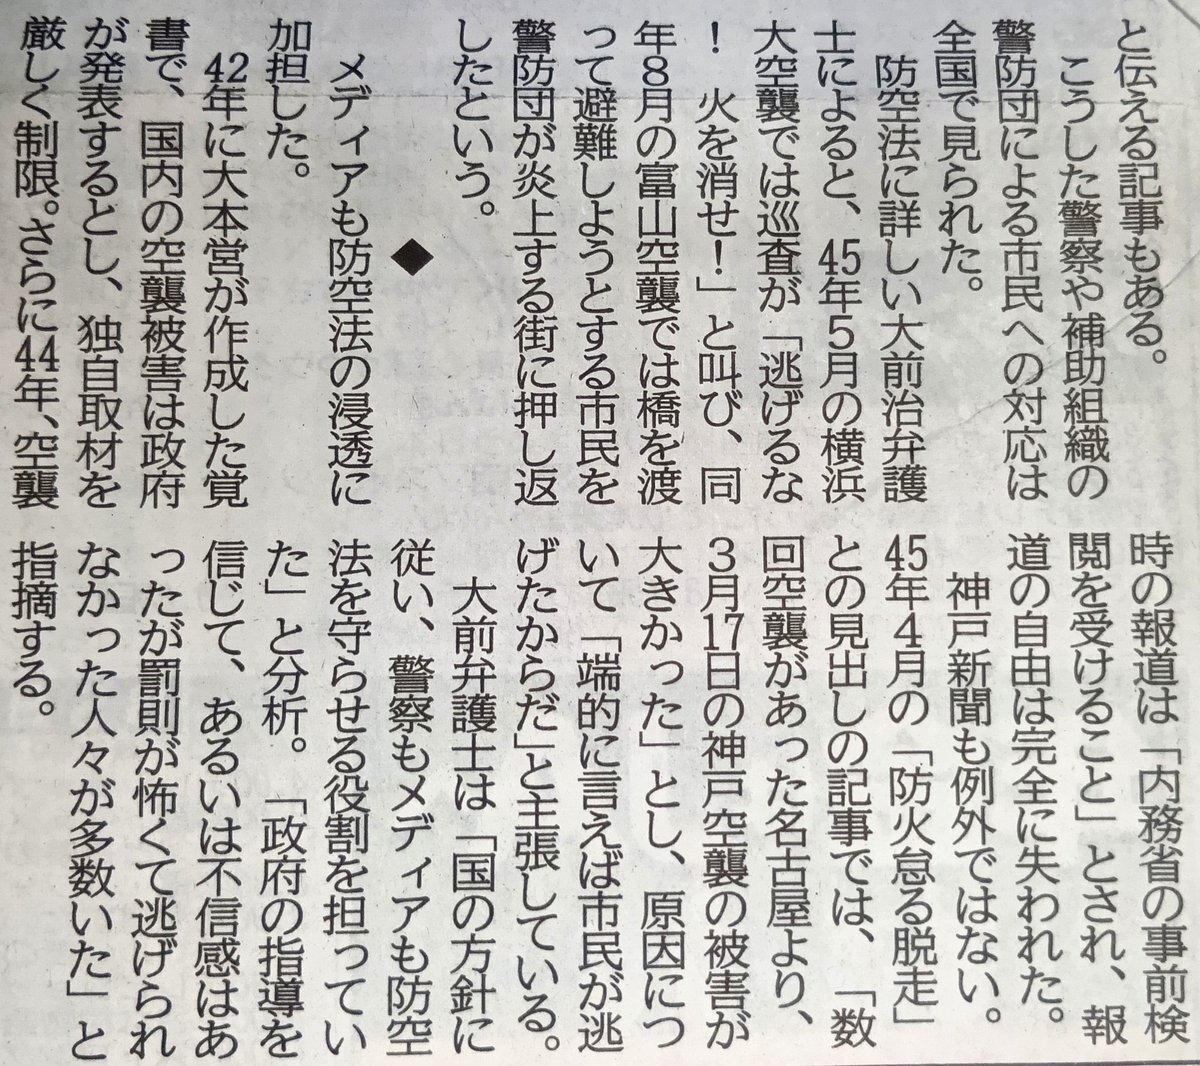 と伝える記事もある。
　こうした警察や補助組織の
警防団による市民への対応は
全国で見られた。
　防空法に詳しい大前治弁護
士によると、45年5月の横浜
大空襲では巡査が「逃げるな
！　火を消せ！」と叫び、同
年8月の富山空襲では橋を渡
って避難しようとする市民を
警防団が炎上する街に押し返
したという。
◆
　メディアも防空法の浸透に
加担した。
　42年に大本営が作成した覚
書で、国内の空襲被害は政府
が発表するとし、独自取材を
厳しく制限。さらに44年、空襲
時の報道は「内務省の事前検
閲を受けること」とされ、報
道の自由は完全に失われた。
　神戸新聞も例外ではない。
45年4月の「防火怠る脱走」
との見出しの記事では、「数
回空襲があった名古屋より、
3月17日の神戸空襲の被害が
大きかった」とし、原因につ
いて「端的に言えば市民が逃
げたからだ」と主張している。
　大前弁護士は「国の方針に
従い、警察もメディアも防空
法を守らせる役割を担ってい
た」と分析。「政府の指導を
信じて、あるいは不信感はあ
ったが罰則が怖くて逃げられ
なかった人々が多数いた」と
指摘する。